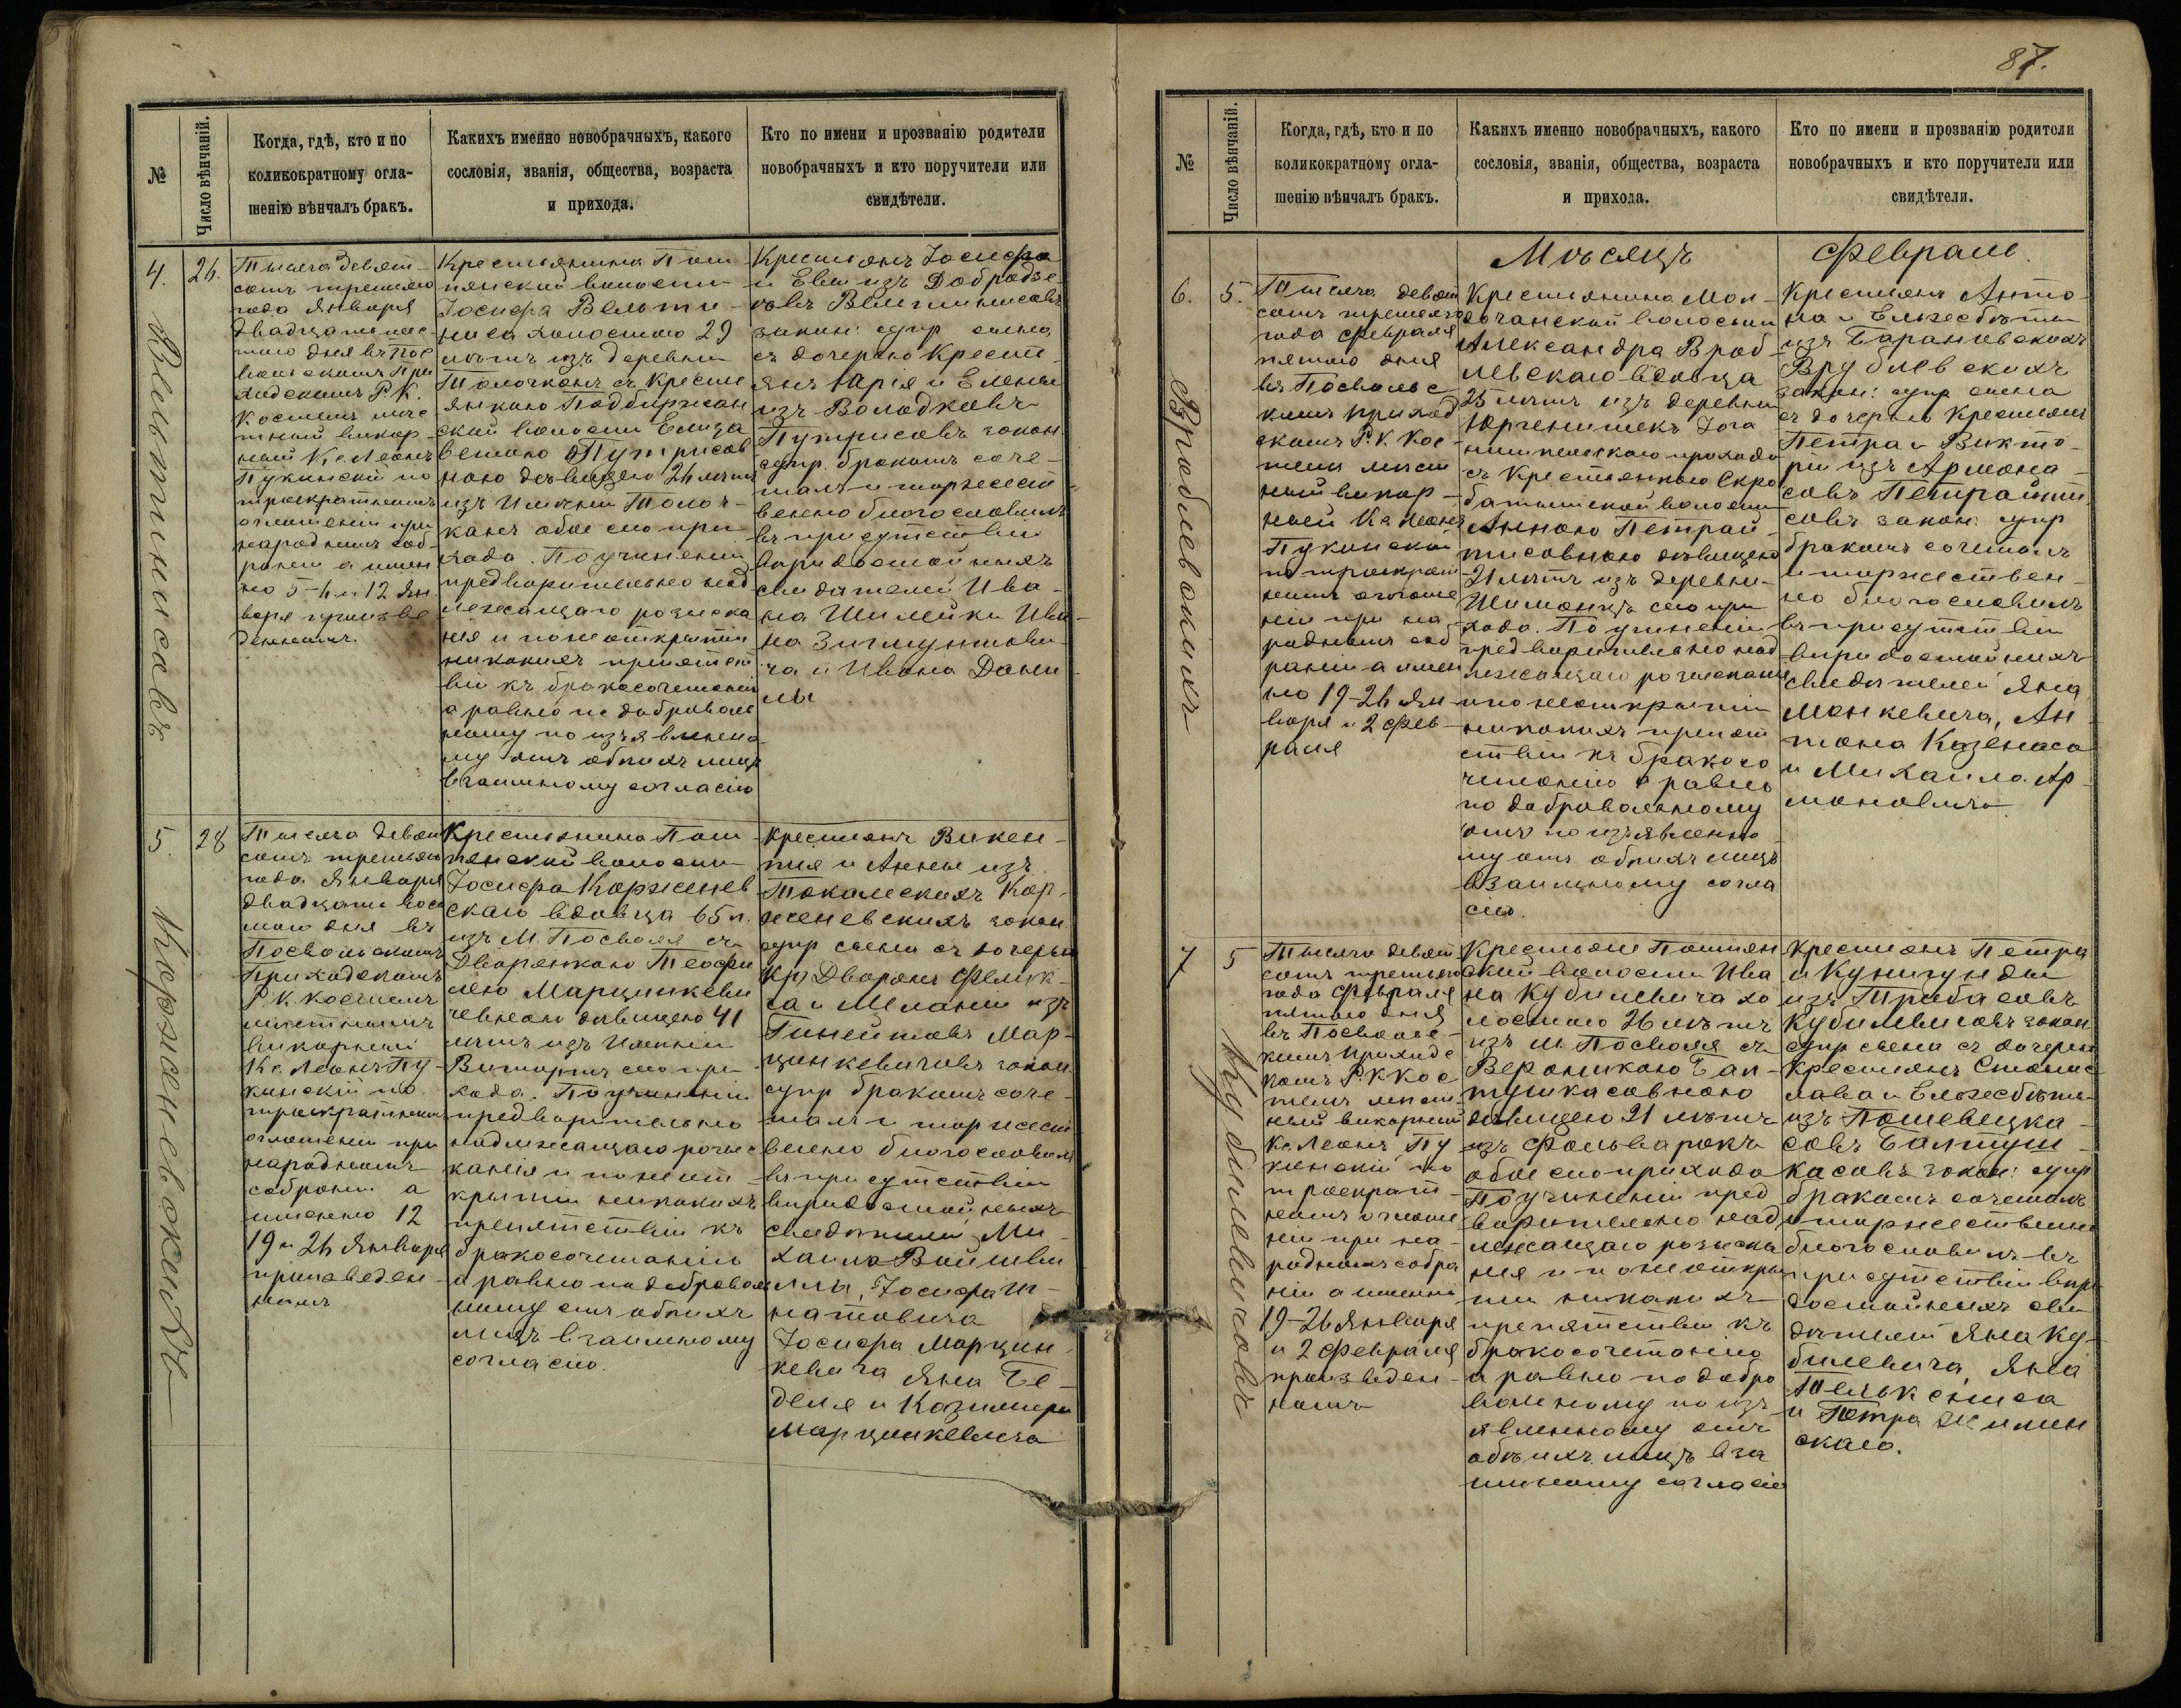 87.
№
Число вѣнчаній.
Когда, гдѣ, кто и по
коликократному огла-
шенію вѣнчалъ бракъ.
Какихъ именно новобрачныхъ, какого
сословія, званія, общества, возраста
и прихода.
Кто по имени и прозванію родители
новобрачныхъ и кто поручители или
свидѣтели.
4.
26.
Тысяча девят-
сотъ третьяго
года Января
двадцать шес-
таго дня въ Пос
вольскомъ При
ходскомъ Р. К.
Костелѣ мѣс-
тный викар-
ный Кс Леонъ
Пукинскій по
троекратномъ
оглашеніи при
народномъ соб-
раніи а имен
но 5-6 и 12 Ян
варя произве
денномъ
Крестьянина Пом-
пянской волости
Іосифа Вельти-
ниса холостаго 29
лѣтъ изъ деревни
Толочканъ съ Крестья
янкою Подбиржан
ской волости Елиза
ветою Путрисов
ною дѣвицею 26 лѣтъ
изъ Имѣнія Толоч-
канъ обое сего при
хода. По учиненіи
предварительно над
лежащаго розыска
нія и по неоткрытіи
никакихъ препятст
вій къ бракосочетанію
а равно по доброволь
ному по изъявленно
му отъ обоихъ лицъ
взаимному согласію
Крестьянъ Іосифа
и Евы изъ Добродзе
овъ Вельтинисовъ
закон: супр сына
съ дочерью Крест-
янъ Юрія и Елены
изъ Володковъ
Путрисовъ закон
супр. бракомъ соче-
талъ и торжест-
венно благословилъ
въ присутствіи
вѣридостойныхъ
свидѣтелей Ива-
на Шилейки Ива-
на Зигмунтови-
ча и Ивана Дани-
лы
Вельтинисовъ
5.
28
Тысяча девят
сотъ третьяго
года Января
двадцать вось
маго дня въ
Посвольскомъ
Приходскомъ
Р. К. костелѣ
мѣстный
викарный
Кс. Леонъ Пу-
кинскій по
троекратномъ
оглашеніи при
народномъ
собраніи а
именно 12
19 и 26 Января
произведен-
номъ
Крестьянина Пом-
пянской волости
Іосифа Корженев
скаго вдовца 65 л.
изъ М. Посволя съ
Дворянкою Теофи
лею Марцинкеви
чевною дѣвицею 41
лѣтъ изъ Имѣнія
сего при
хода. По учиненіи
предварительно
надлежащаго розыс
канія и по неот-
крытіи никакихъ
препятствій къ
бракосочетанію
а равно по доброволь
ному отъ обоихъ
лицъ взаимному
согласію.
Крестьянъ Викен-
тія и Анны изъ
Токальскихъ Кор-
женевскихъ закон
супр сына съ дочерью
Кр) Дворянъ Фелик-
са и Меланіи изъ
Гинейтовъ Мар-
цинкевичовъ закон
супр бракомъ соче-
талъ и торжест
венно благословилъ
въ присутствіи
вѣридостойныхъ
свидѣтелей Ми-
хаила
Іосифа
Іосифа Марцин-
кевича Яна Бе-
деля и Казимира
Марцинкевича
Корженевскихъ
№
Число вѣнчаній.
Когда, гдѣ, кто и по
коликократному огла-
шенію вѣнчалъ бракъ.
Какихъ именно новобрачныхъ, какого
сословія, званія, общества, возраста
и прихода.
Кто по имени и прозванію родители
новобрачныхъ и кто поручители или
свидѣтели.
Мѣсяцъ Февраль.
6.
5.
Тысяча девят
сотъ третьяго
года Февраля
пятаго дня
въ Посвольс
комъ приход
скомъ Р. К. Кос-
телѣ мѣст
ный викар-
ный Кс Леонъ
Пукинскій
по троекрат
номъ оглаше
ніи при на-
родномъ соб
раніи а имен
но 19-26 Ян
варя и 2 Фев-
раля
Крестьянина Мол-
очанской волости
Александра Вроб-
левскаго вдовца
25 лѣтъ изъ деревни
Юргенишекъ Іога
нишкельскаго прихода
съ Крестьянкою Скро
батышской волости
Анною Петрай-
тисовною дѣвицею
21 лѣтъ изъ деревни
Шимонцъ сего при
хода. По учиненіи
предварительно над
лежащаго розысканія
и по неоткрытіи
никакихъ препят
ствій къ бракосо
четанію а равно
по добровольному
отъ по изъявленно
му отъ обоихъ лицъ
взаимному согла
сію.
Крестьянъ Анто-
на и Ельжбѣты
изъ Барановскихъ
Врублевскихъ
закон: супр сына
съ дочерью Крестьянъ
Петра и Викто-
ріи изъ Армона-
совъ Петрайти
совъ закон: супр
бракомъ сочеталъ
и торжествен-
но благословилъ
въ присутствіи
вѣридостойныхъ
свидѣтелей Яна
Монкевича, Ан-
тона Казенаса
и Михаила Ар-
моновича
Вроблевскихъ
7
5
Тысяча девят
сотъ третьяго
года Февраля
пятаго дня
въ Посвольс-
комъ Приходс
комъ Р. К Кос
телѣ мѣст-
ный викарный
Кс Леонъ Пу
кинскій по
троекрат-
номъ оглаше
ніи при на-
родномъ собра
ніи а именно
19-26 Января
и 2 Февраля
произведен-
номъ
Крестьяне Помпян
ской волости Ива
на Кубилевича хо
лостаго 26 лѣтъ
изъ м. Посволя съ
Вероникою Бал-
тушкасовною
дѣвицею 21 лѣтъ
изъ Фольварокъ
обое сего прихода
По учиненіи пред
варительно над
лежащаго розыска
нія и по неоткры
тіи никакихъ
препятствій къ
бракосочетанію
а равно по добро
вольному по изъ-
явленному отъ
обоихъ лицъ вза
имному согласію
Крестьянъ Петра
и Кунигунды
изъ Трабасовъ
Кубилевисовъ закон
супр сына съ дочерью
Крестьянъ Станис
лава и Ельжбѣты
изъ Пошевецка-
совъ Балтуш-
касовъ закон: супр
бракомъ сочеталъ
и торжественно
благословилъ въ
присутствіи вѣри
достойныхъ сви
дѣтелей Яна Ку-
билевича, Яна
Телькениса
и Петра Жилин
скаго.
Кубилевичовъ